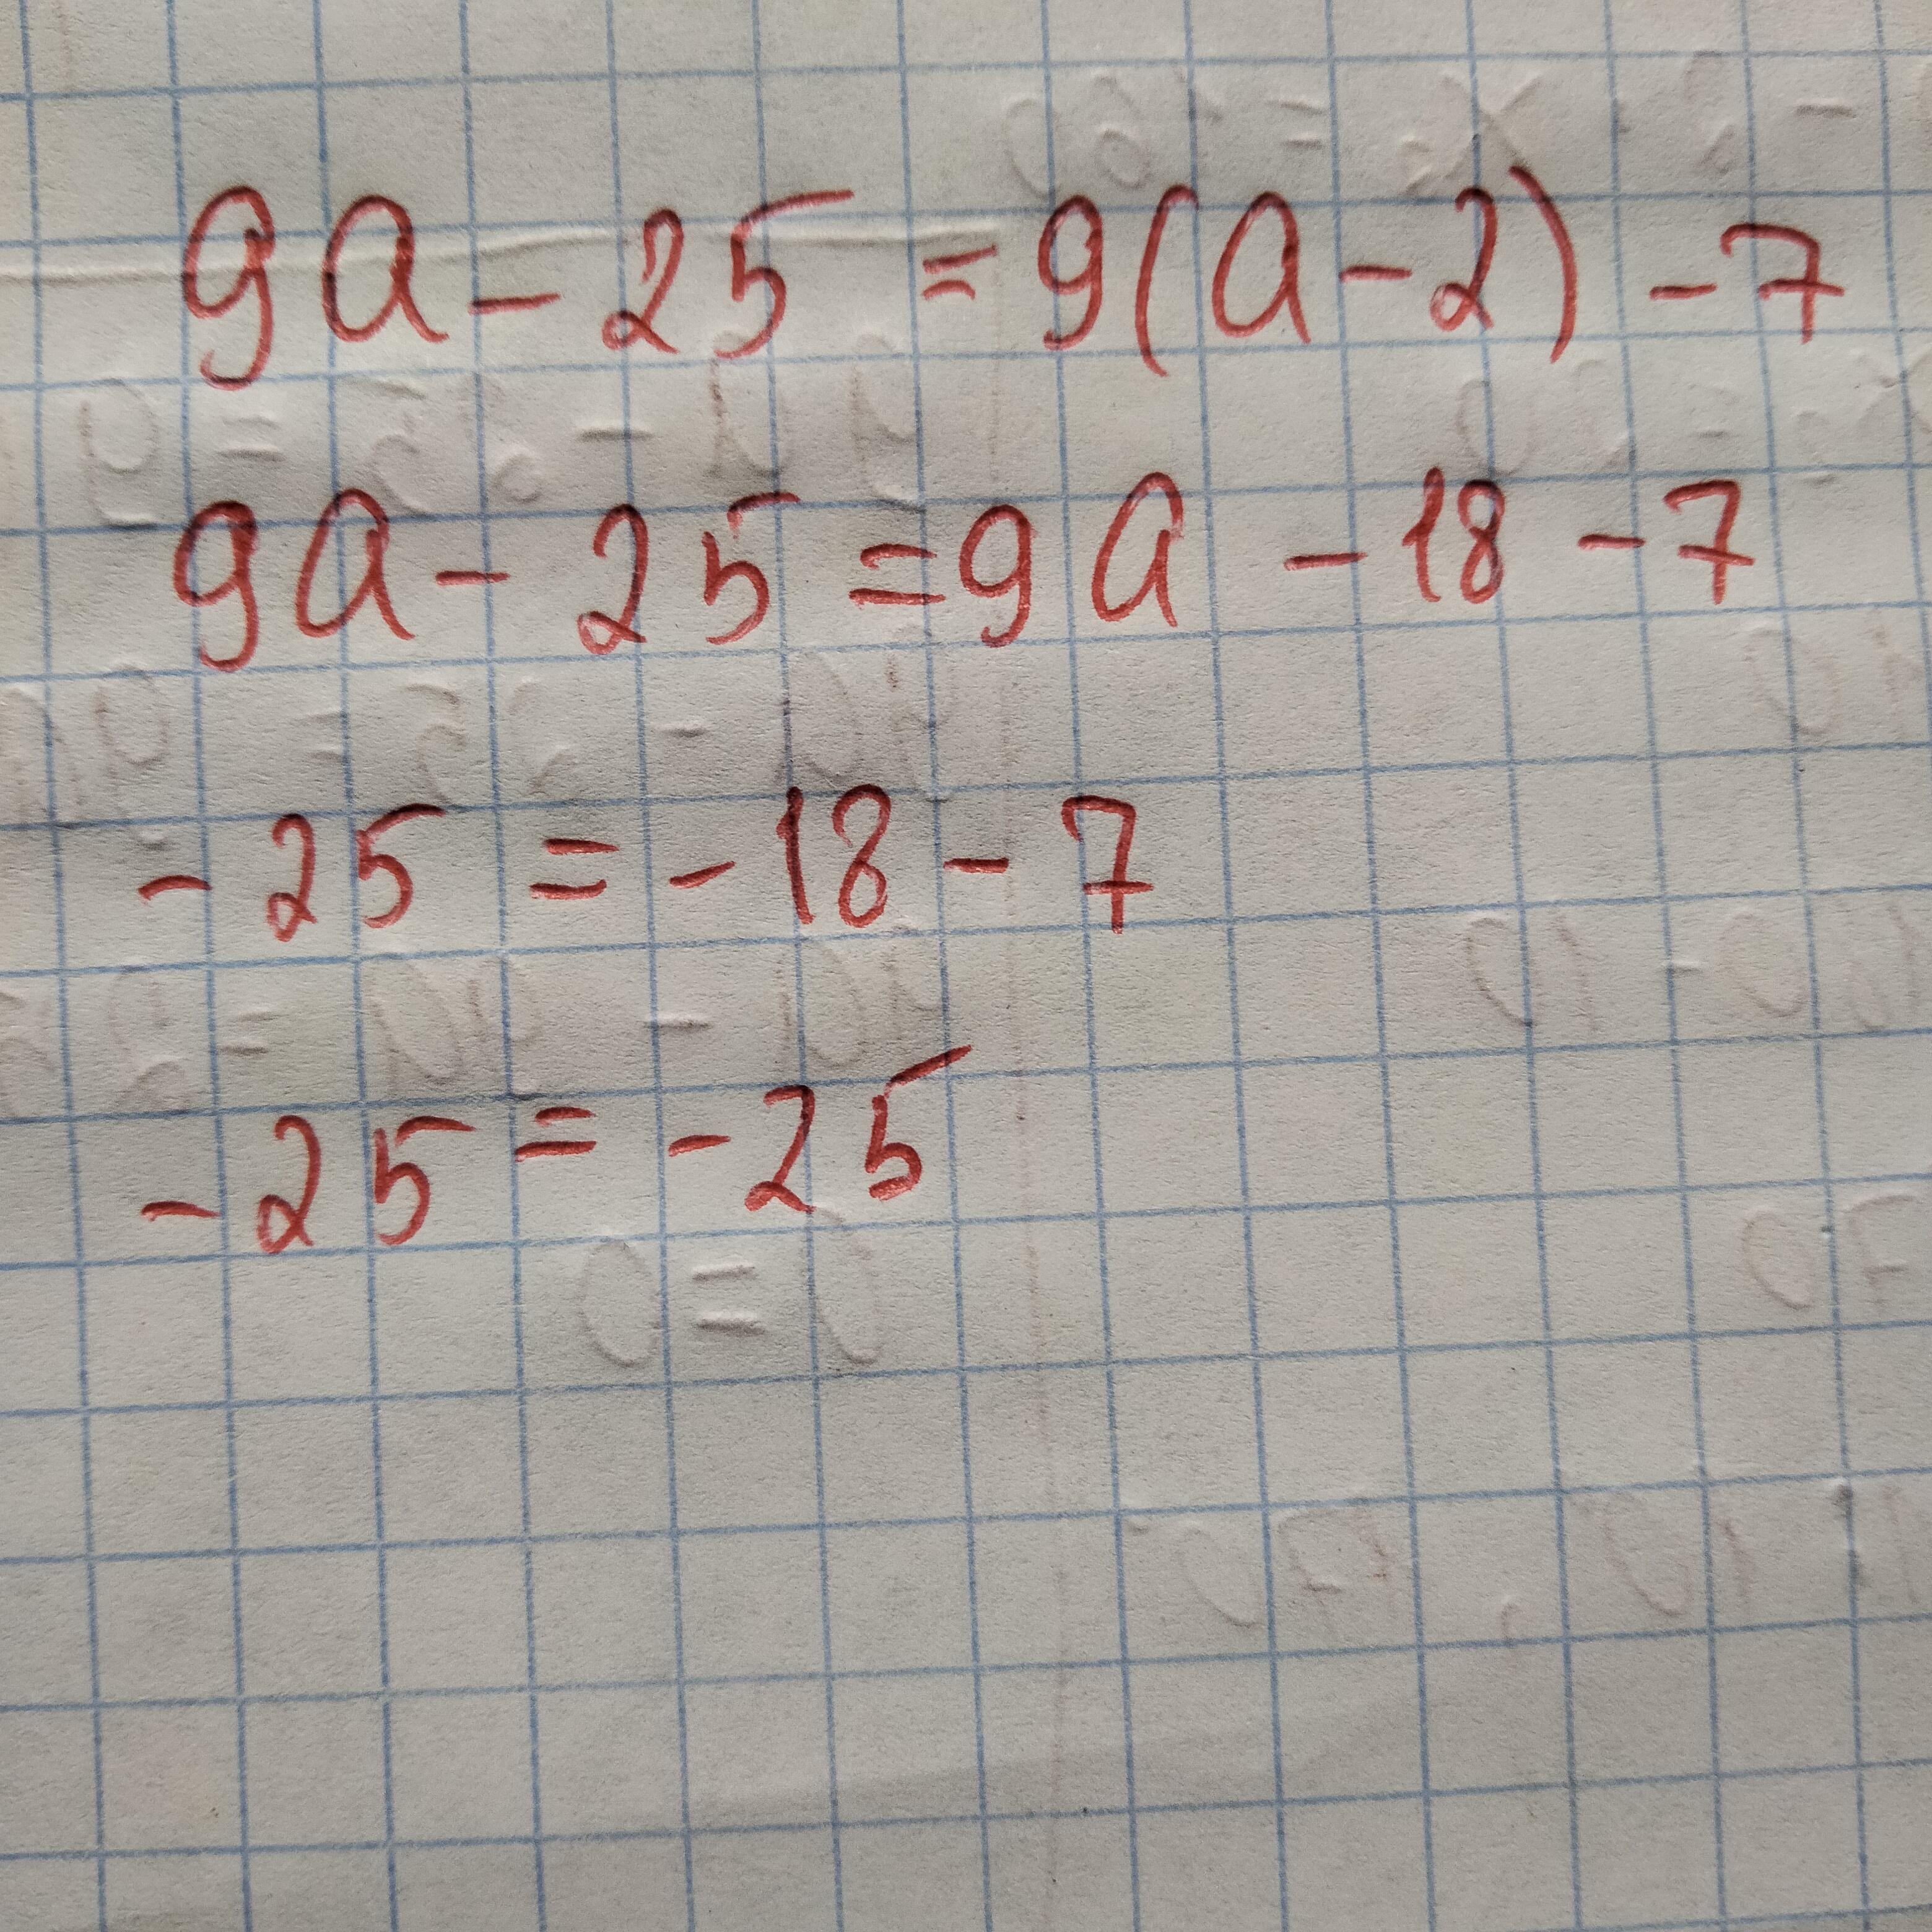 9a - 25 = 9(a - 2) - 7
9a - 25 = 9a - 18 - 7
- 25 = - 18 - 7
- 25 = - 25